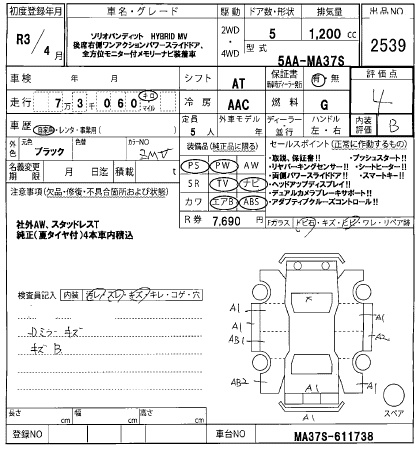 初度登録年月 車名・グレード 駆動 ドア数・形状 排気量 出品NO
R3/4月 ソリオバンディット HYBRID MV 2WD・4WD 5 1,200cc 2539
後席右側ワンアクションパワースライドドア、
全方位モニター付メモリーナビ装着車 型式 5AA-MA37S
車検 年 月 シフト AT 保証書 有・無 評価点 4
走行 7万3千060 キロ マイル 冷房 AAC 燃料 G
車歴 自家用・レンタ・事業用( ) 定員 5人 外車モデル 年 ディーラー 並行 ハンドル 左・右 内装評価 B
外色 元色 ブラック 色替 カラーNO ZMV
装備品(純正品に限る) セールスポイント(正常に動作するもの)
名義変更期限 月 日迄 積載 t
PS PW AW
SR TV ナビ
カワ エアB ABS
・取説、保証書!! ・プッシュスタート!!
・リヤパーキングセンサー!! ・シートヒーター!!
・両側パワースライドドア!! ・スマートキー!!
・ヘッドアップディスプレイ!!
・デュアルカメラブレーキサポート!!
・アダプティブクルーズコントロール!!
注意事項(欠品・修復・不具合箇所および状態)
R券 7,690円 Fガラス トビ石・キズ・ヒビ・ワレ・リペア跡
社外AW、スタッドレスT
純正(夏タイヤ付)4本車内積込
検査員記入 内装 汚レ・スレ・キズ・キレ・コゲ・穴
Dミラー キズ
キズ B
A1
A1
AB1
AB2
A1
A2
A1
A1
スペア
長さ cm 幅 cm 高さ cm
登録NO 車台NO MA37S-611738